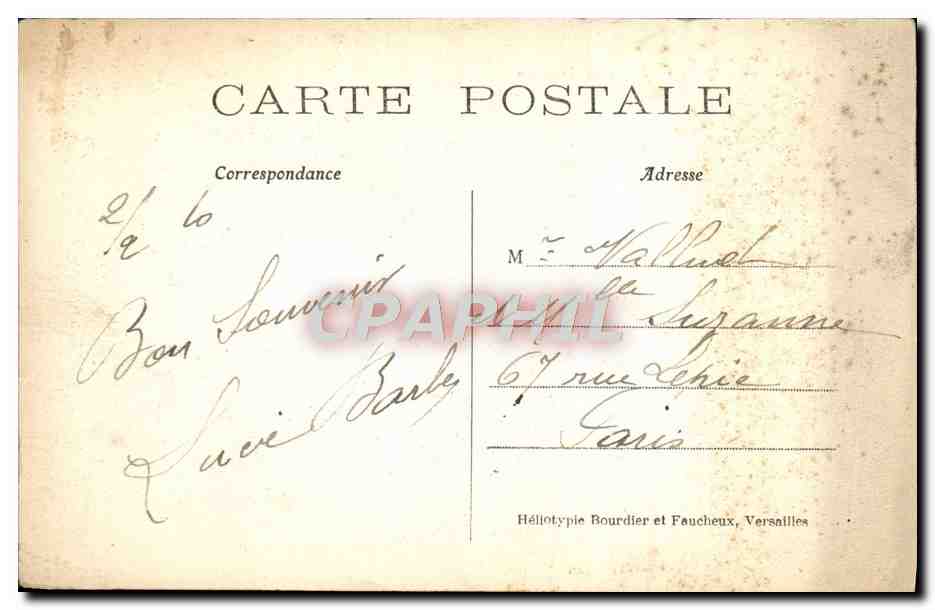 CARTE POSTALE
Correspondance
Adresse
2/9 10
Bon Souvenir
Lucie Barbey
Mr
Mlle Suzanne
67 rue Lepic
Paris
CPAPHIL
Héliotypie Bourdier et Faucheux, Versailles